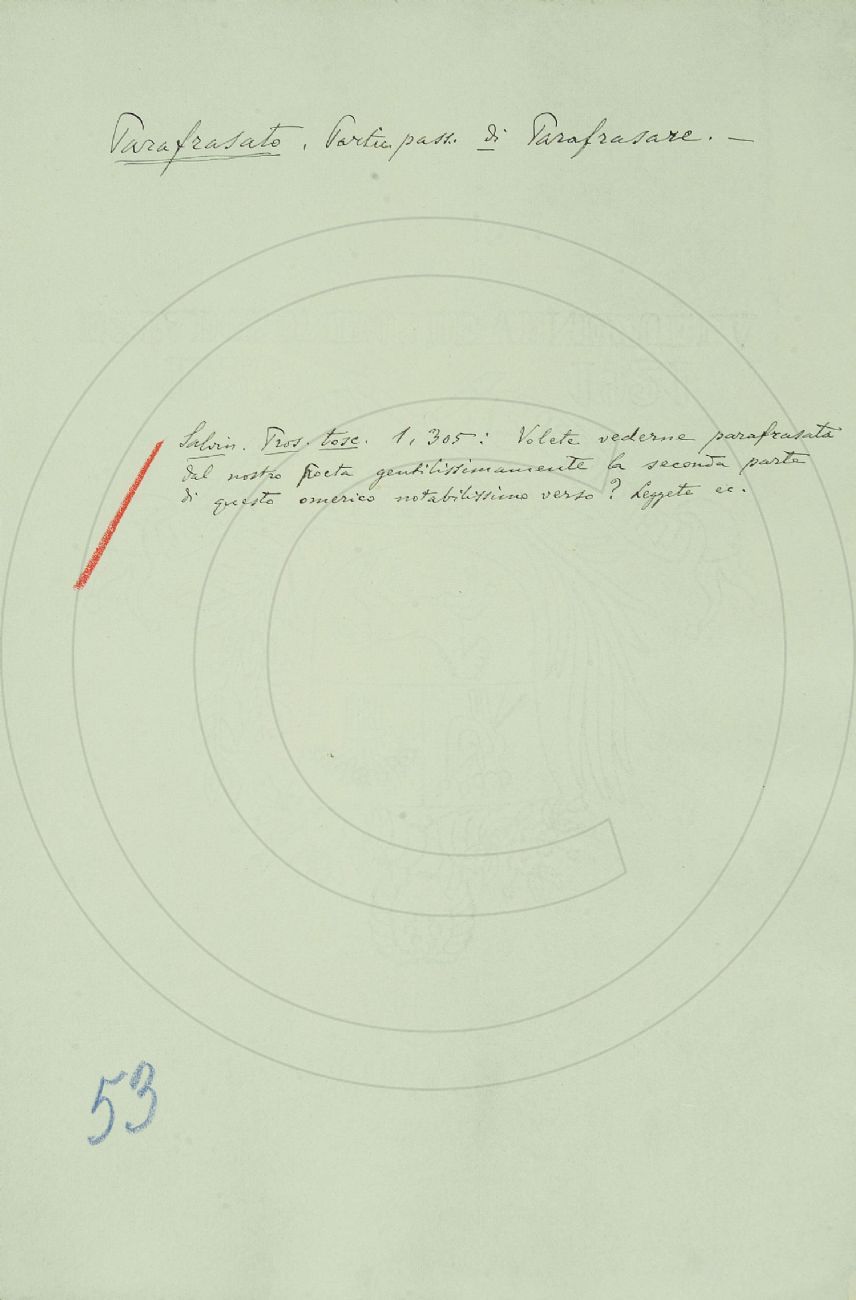 Parafrasato. Partic. pass. di Parafrasare. —
Salvin. Pros. tosc. 1, 305: Volete vederne parafrasata
dal nostro Poeta gentilissimamente la seconda parte
di questo omerico notabilissimo verso? Leggete ec.
53